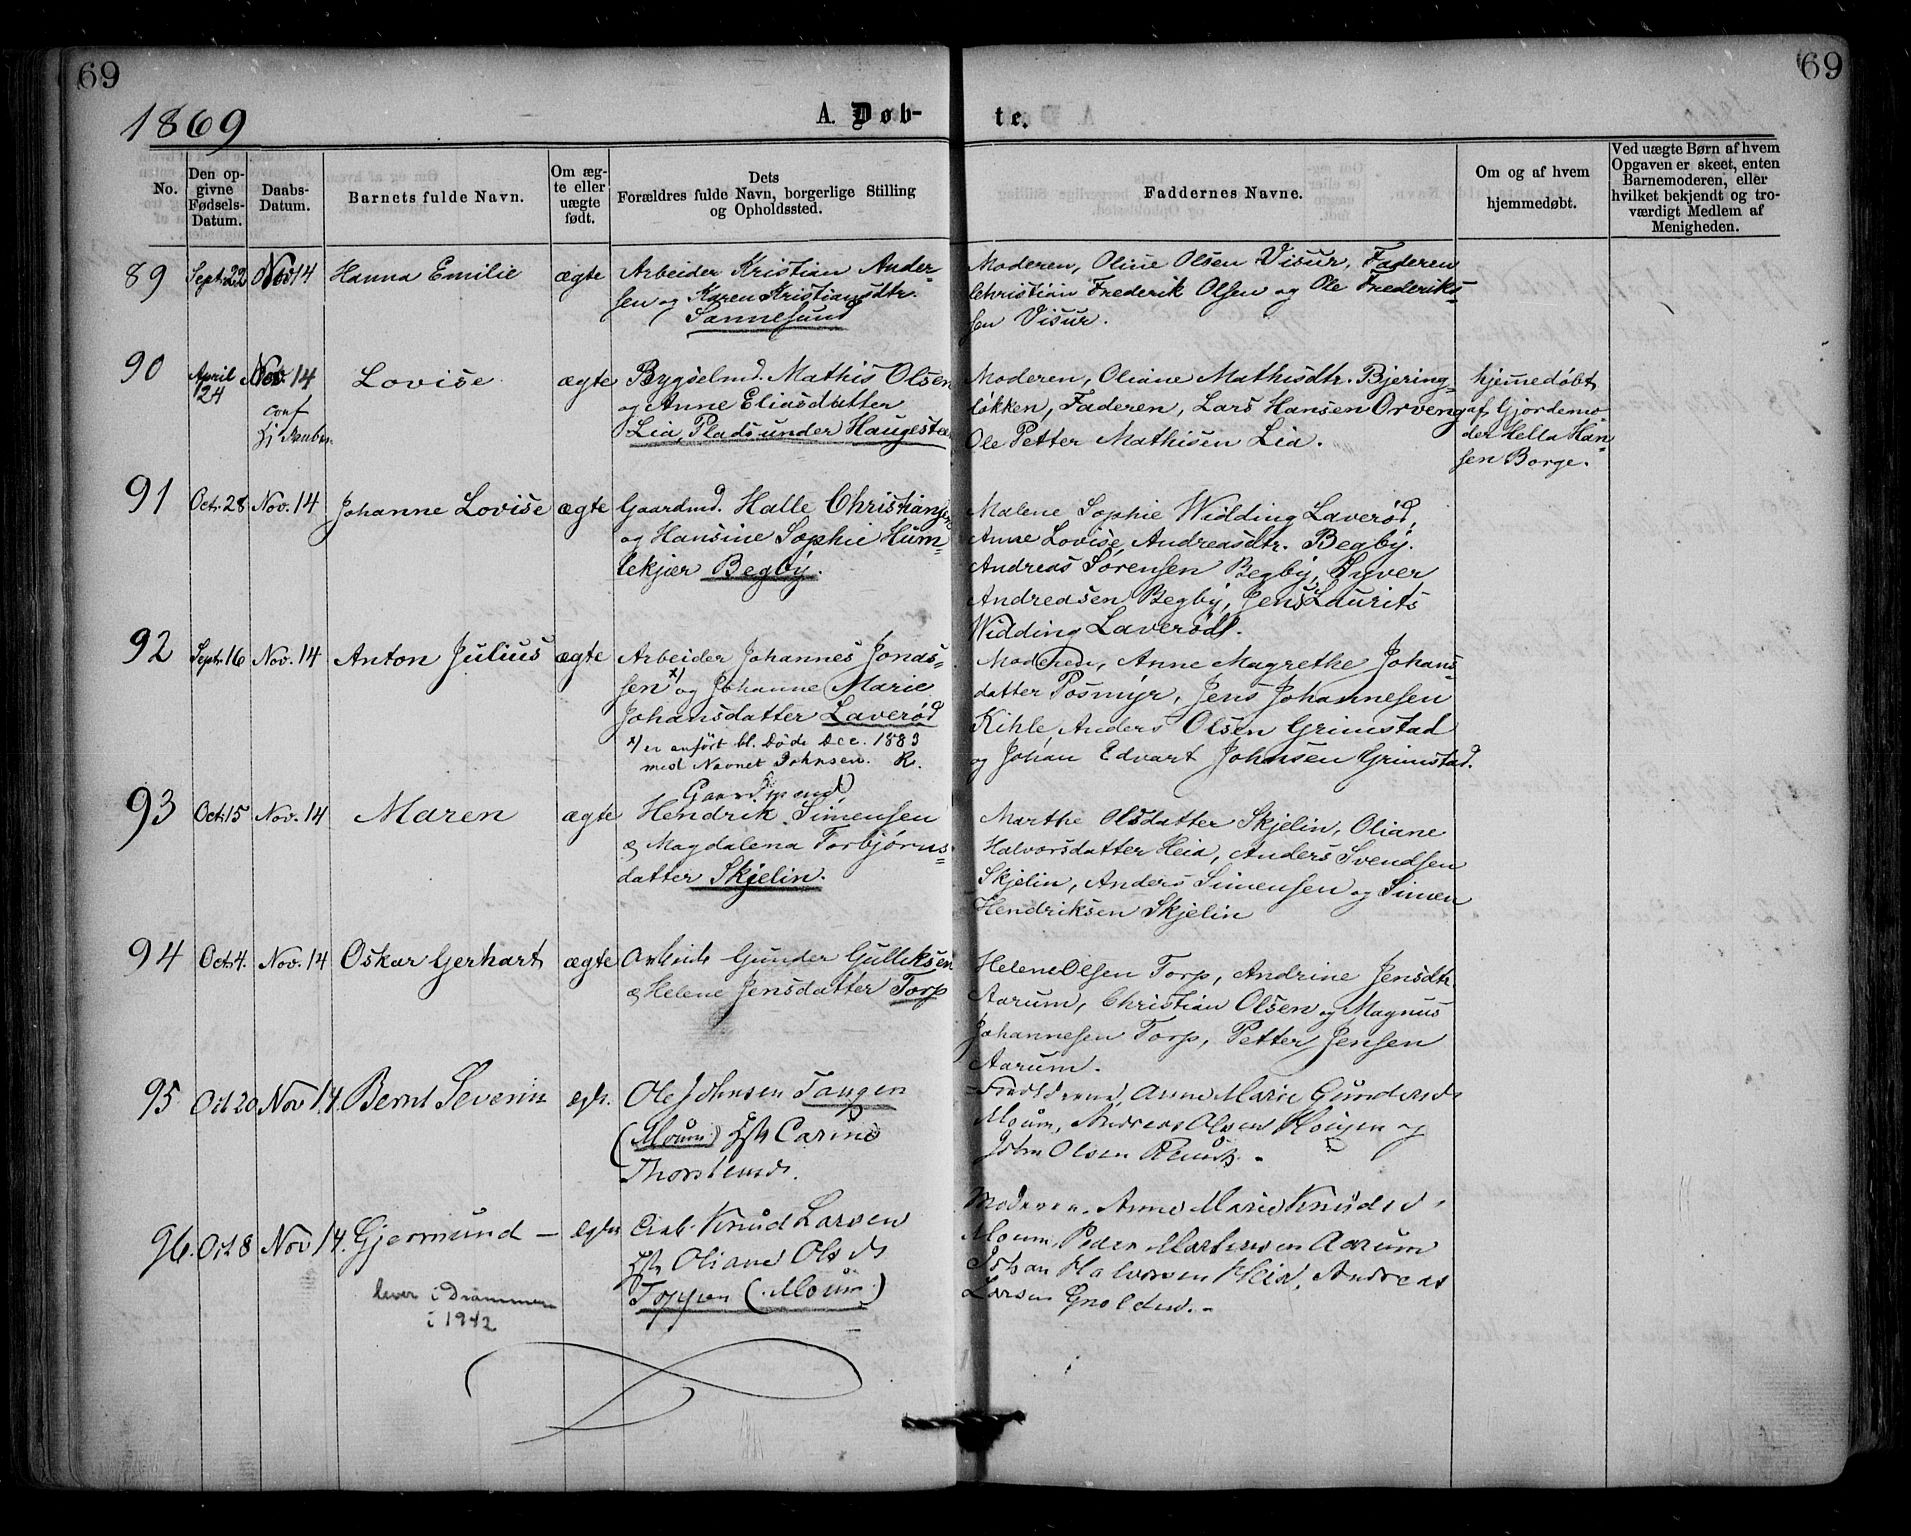 69
69
1869
A. Døb-
te.
No.
Den op-
givne
Fødsels-
Datum.
Daabs-
Datum.
Barnets fulde Navn.
Om æg-
te eller
uægte
født.
Dets
Forældres fulde Navn, borgerlige Stilling
og Opholdssted.
Faddernes Navne.
Om og af hvem
hjemmedøbt.
Ved uægte Børn af hvem
Opgaven er skeet, enten
Barnemoderen, eller
hvilket bekjendt og tro-
værdigt Medlem af
Menigheden.
89 Sept. 22 Nov 14 Hanna Emilie ægte
Arbeider Kristian Ander-
sen og Karen Kristiansdtr.
Sannesund
Moderen, Oline Olsen Visur, Faderen
Christian Frederik Olsen og Ole Frederik-
sen Visur.
90 April 24 Nov. 14 Lovise ægte
conf
Bygselmd. Mathis Olsen
og Anne Eliasdatter
Lia, Plads under Haugesten
Moderen, Oliane Mathisdtr. Bjering-
løkken, Faderen, Lars Hansen Orveng
Ole Petter Mathisen Lia.
hjemedøbt
af Gjordemo-
der Hella Han-
sen Borge.
91 Oct. 28 Nov. 14 Johanne Lovise ægte
Gaardmd. Halle Christiansen
og Hansine Sophie Hum-
lekjær Begby.
Malene Sophie Widding Laverød,
Anne Lovise Andreasdtr. Begby.
Andreas Sørensen Begby, Syver
Andreasen Begby, Jens Laurits
Widding Laverød.
92 Sept. 16 Nov. 14 Anton Julius ægte
Arbeider Johannes Jonas-
sen x) og Johanne Marie
Johansdatter Laverød
x) er anført bl. Døde Dec. 1883
med Navnet Johnsen. R.
Moderen, Anne Magrethe Johans-
datter Posmyr, Jens Johannesen
Kihle, Anders Olsen Grimstad
og Johan Edvart Johnsen Grimstad.
93 Oct. 15 Nov. 14 Maren ægte
Gaardmand
Hendrik Simensen
& Magdalena Torbjørns-
datter Skjelin.
Marthe Olsdatter Skjelin, Oliane
Halvorsdatter Heia, Anders Svendsen
Skjelin, Anders Simensen og Simen
Hendriksen Skjelin
94 Oct. 4. Nov. 14 Oskar Gerhart ægte
Arbeid Gunder Gulleksen
& Helene Jensdatter Torp
Helene Olsen Torp, Andrine Jensdtr.
Aarum, Christian Olsen og Magnus
Johannesen Torp, Petter Jensen
Aarum.
95 Oct 20 Nov 14. Bernt Severin ægte.
Ole Johnsen Tangen
(Moum) Carine
Thorstensd.
Forældrene, Anne Marie Gundersd.
Moum, Andreas Olsen Hougen og
John Olsen
96. Oct 8 Nov 14. Gjermund – ægte
lever i Drammen
i 1942
Arb. Knud Larsen
Oliane Olsd.
Toppen (Moum)
Moderen, Anne Marie Knudsd.
Moum, Peder Martinsen Aarum
Johan Halvorsen Heia, Andreas
Larsen